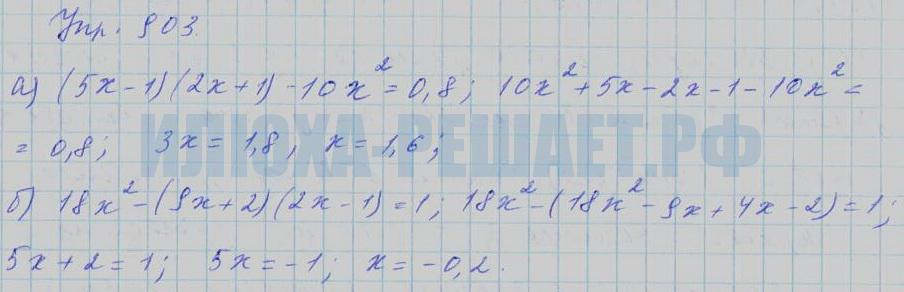 Упр. 903.
а) (5x-1)(2x+1)-10x²=0,8; 10x²+5x-2x-1-10x²=
= 0,8; 3x=1,8, x=1,6;
ИЛЮХА-РЕШАЕТ.РФ
б) 18x²-(9x+2)(2x-1)=1; 18x²-(18x²-9x+4x-2)=1;
5x+2=1; 5x=-1; x=-0,2.